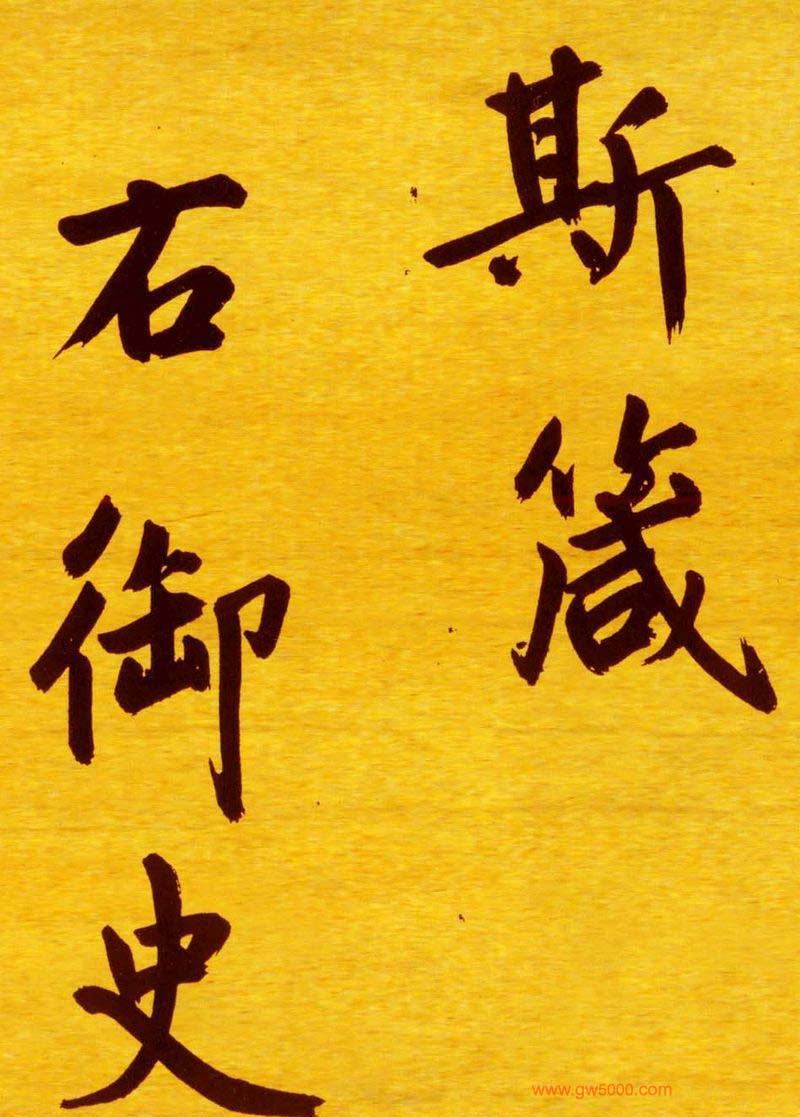 斯箴
右御史
www.gw5000.com